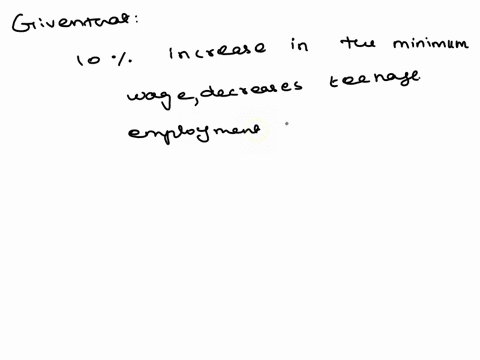 Given that:
10% Increase in the minimum
wage, decreases teenage
employment